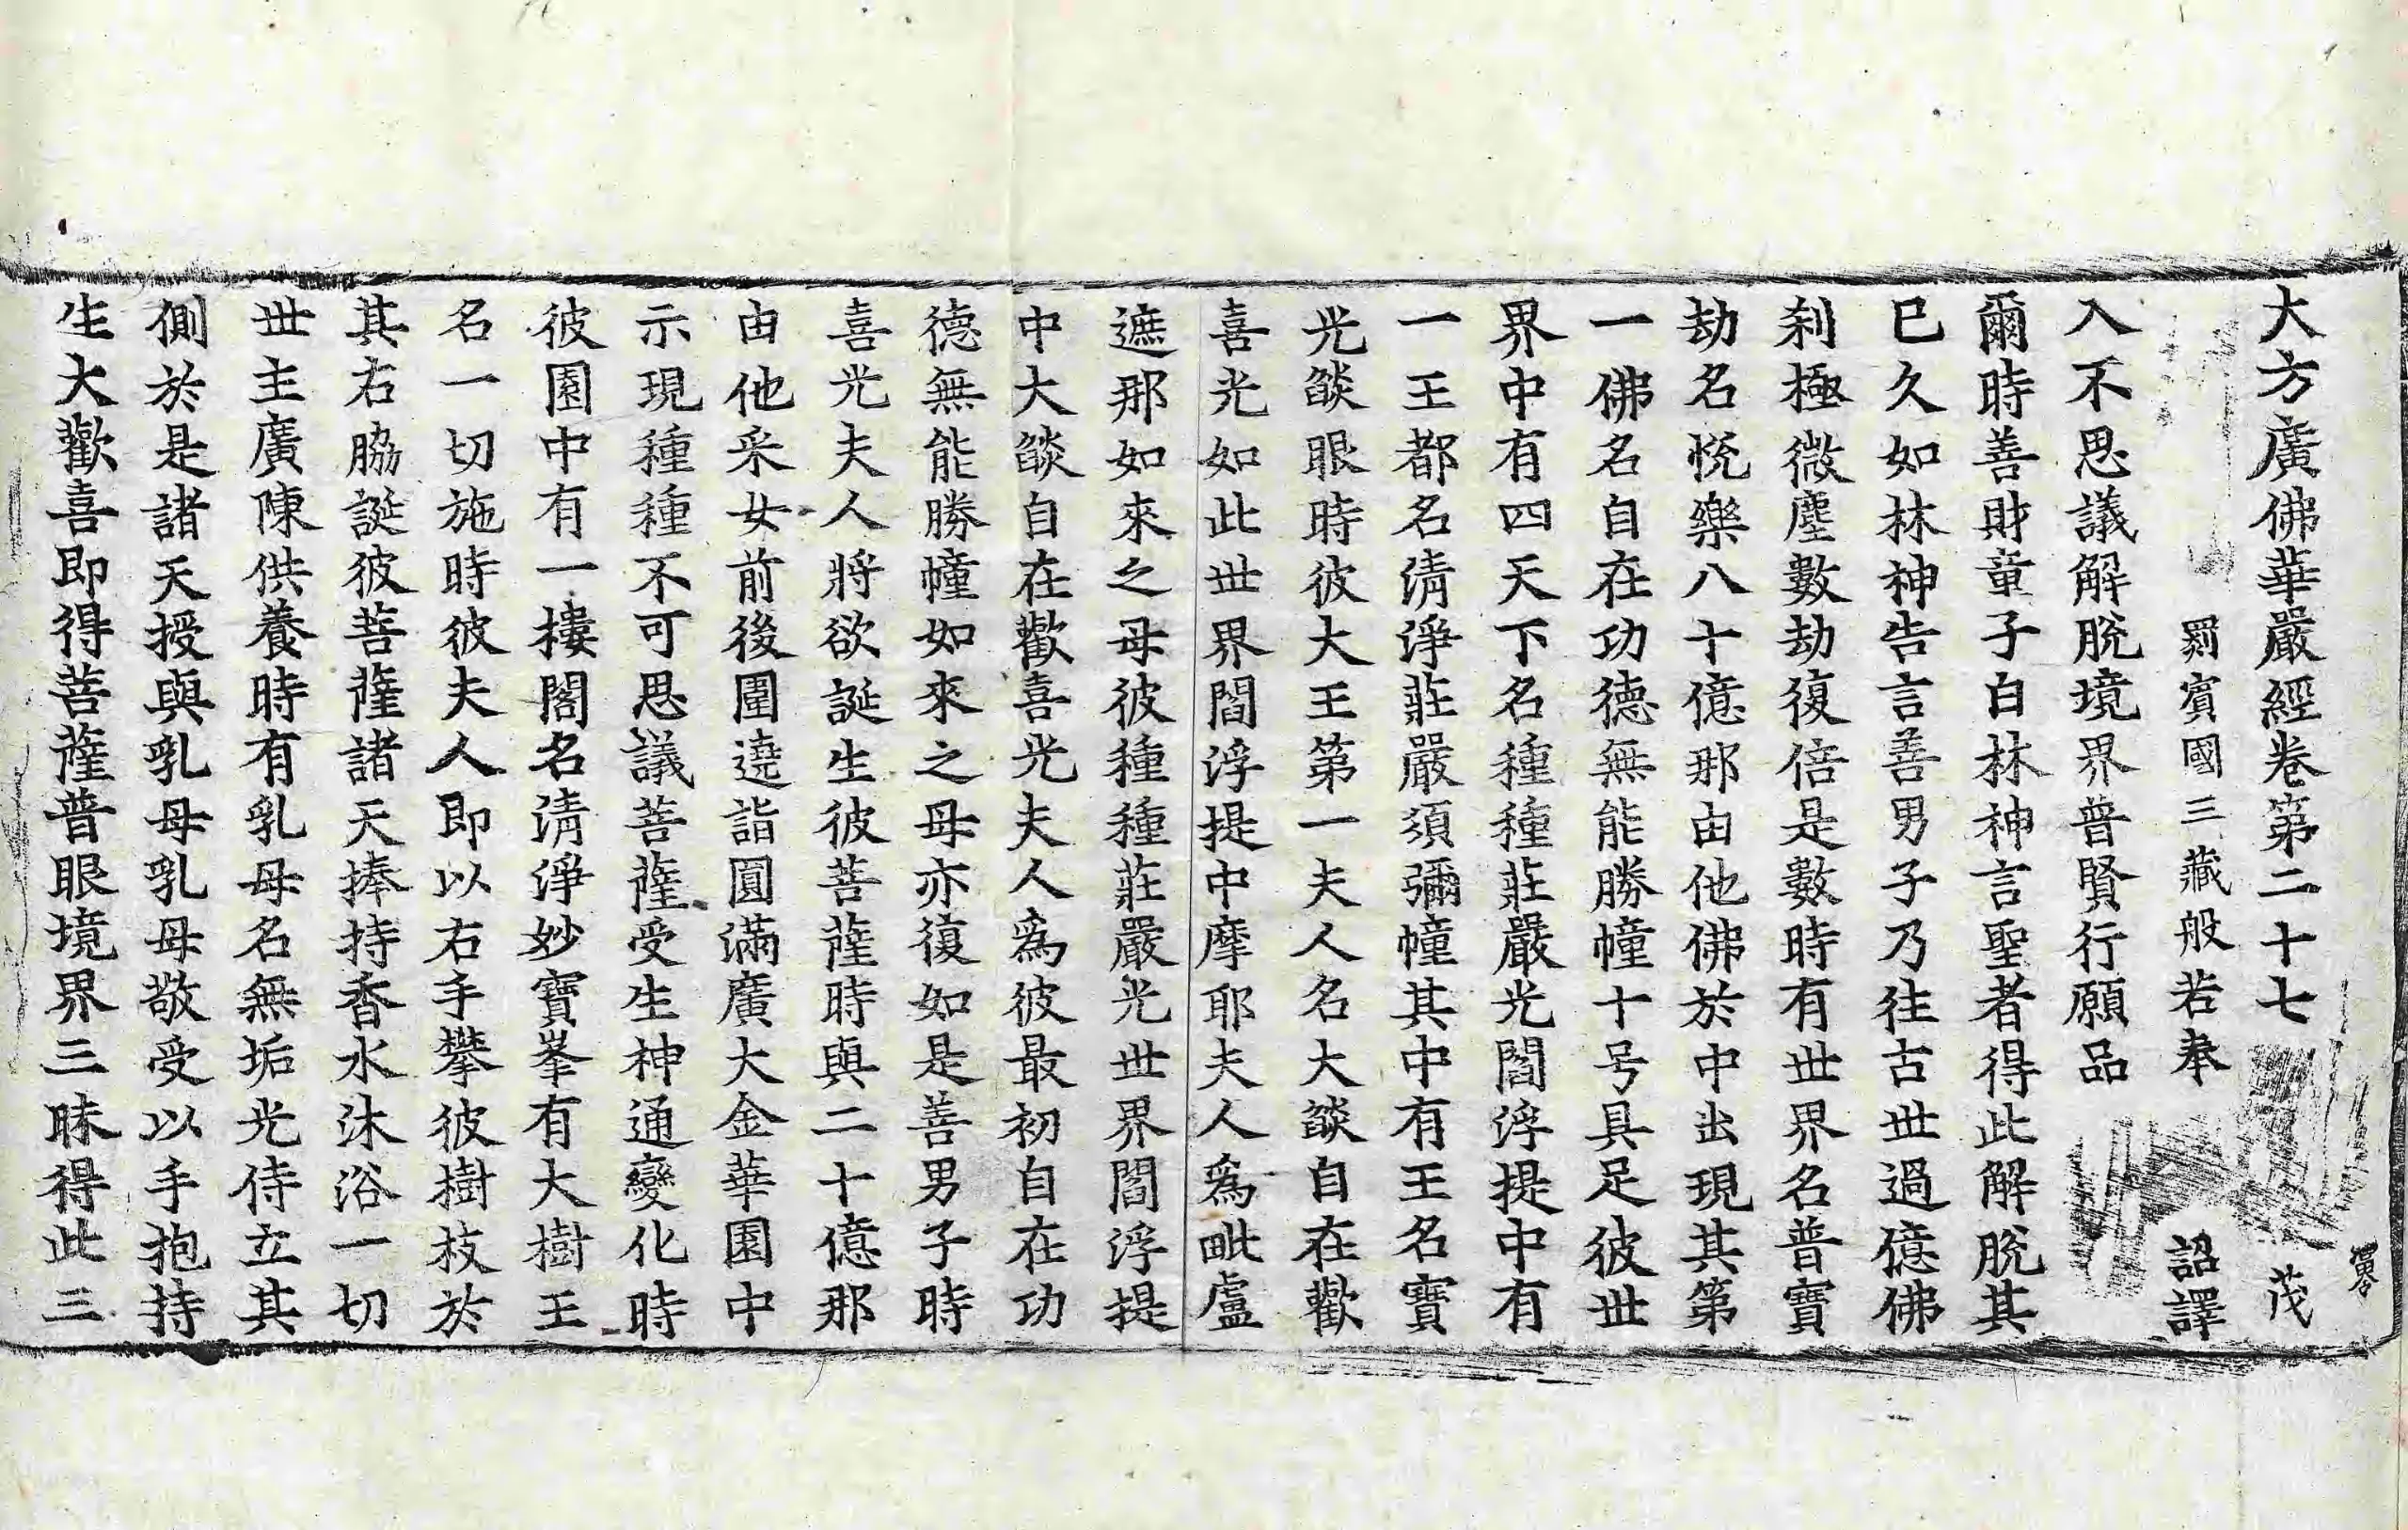 大方廣佛華嚴經卷第二十七 茂
罽賓國三藏般若奉 詔譯
入不思議解脫境界普賢行願品
爾時善財童子白林神言聖者得此解脫其
已久如林神告言善男子乃往古世過億佛
剎極微塵數劫復倍是數時有世界名普寶
劫名悅樂八十億那由他佛於中出現其第
一佛名自在功德無能勝幢十号具足彼世
界中有四天下名種種莊嚴光閻浮提中有
一王都名清淨莊嚴須彌幢其中有王名寶
光燄眼時彼大王第一夫人名大燄自在歡
喜光如此世界閻浮提中摩耶夫人為毗盧
遮那如來之母彼種種莊嚴光世界閻浮提
中大燄自在歡喜光夫人為彼最初自在功
德無能勝幢如來之母亦復如是善男子時
喜光夫人將欲誕生彼菩薩時與二十億那
由他采女前後圍遶詣圓滿廣大金華園中
示現種種不可思議菩薩受生神通變化時
彼園中有一樓閣名清淨妙寶峯有大樹王
名一切施時彼夫人即以右手攀彼樹枝於
其右脇誕彼菩薩諸天捧持香水沐浴一切
世主廣陳供養時有乳母名無垢光侍立其
側於是諸天授與乳母乳母敬受以手抱持
生大歡喜即得菩薩普眼境界三昧得此三